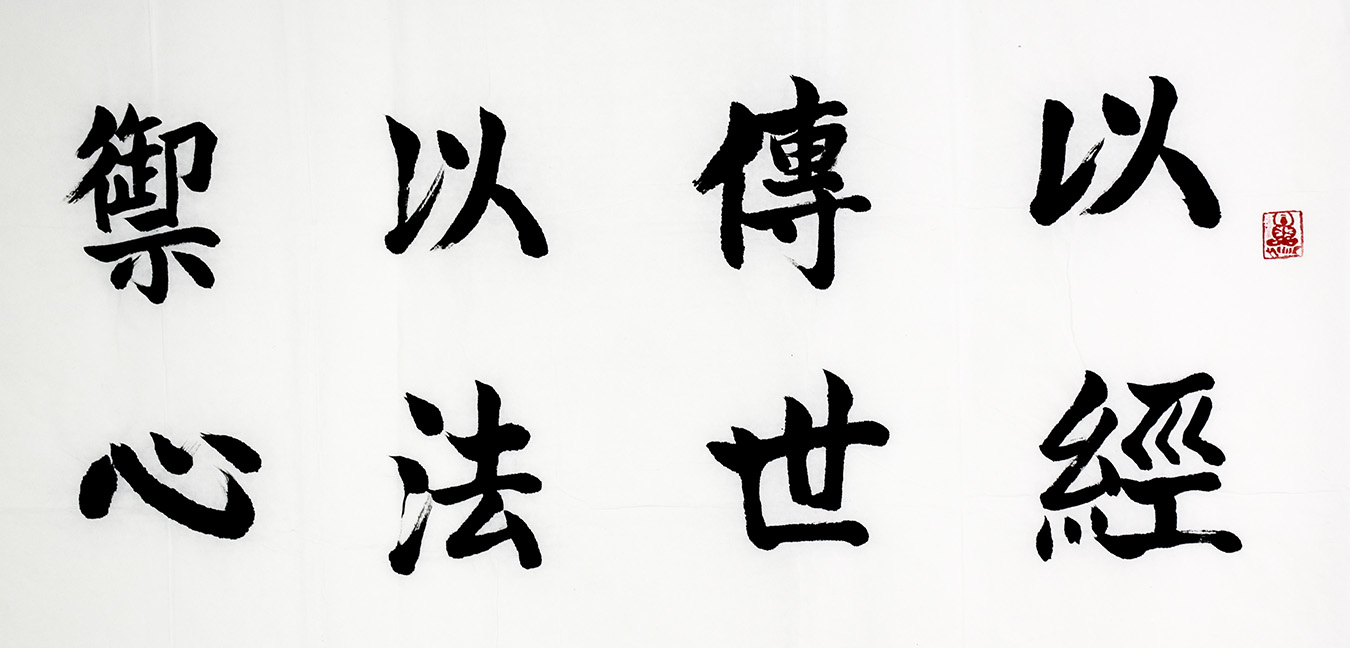 以經
傳世
以法
禦心